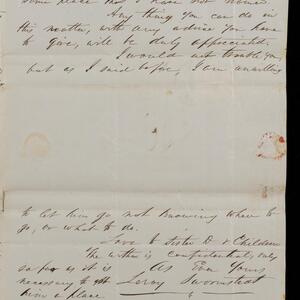 some place that I have not named.
Any thing you can do in
this matter, with any advise you have
to give, will be duly appreciated.
I would not trouble you,
but as I said before, I am unwilling
to let him go not knowing where to
go, or what to do.
Love to Sister D & Children
The within is confidential only
so far as it is As Ever Yours
necessary to get Leroy
him a place